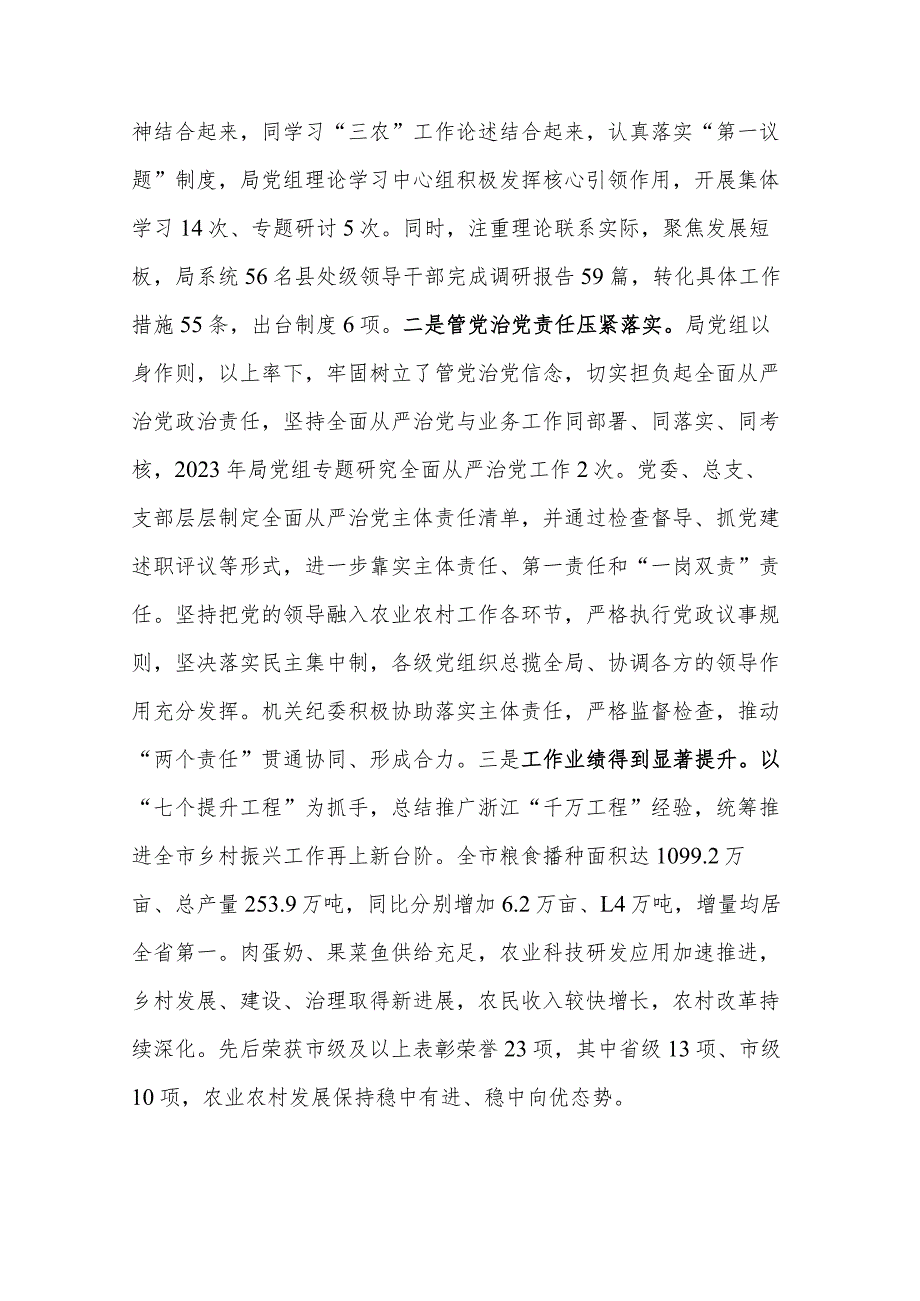 神结合起来，同学习“三农”工作论述结合起来，认真落实“第一议
题”制度，局党组理论学习中心组积极发挥核心引领作用，开展集体
学习 14 次、专题研讨 5 次。同时，注重理论联系实际，聚焦发展短
板，局系统 56 名县处级领导干部完成调研报告 59 篇，转化具体工作
措施 55 条，出台制度 6 项。二是管党治党责任压紧落实。局党组以
身作则，以上率下，牢固树立了管党治党信念，切实担负起全面从严
治党政治责任，坚持全面从严治党与业务工作同部署、同落实、同考
核，2023 年局党组专题研究全面从严治党工作 2 次。党委、总支、
支部层层制定全面从严治党主体责任清单，并通过检查督导、抓党建
述职评议等形式，进一步靠实主体责任、第一责任和“一岗双责”责
任。坚持把党的领导融入农业农村工作各环节，严格执行党政议事规
则，坚决落实民主集中制，各级党组织总揽全局、协调各方的领导作
用充分发挥。机关纪委积极协助落实主体责任，严格监督检查，推动
“两个责任”贯通协同、形成合力。三是工作业绩得到显著提升。以
“七个提升工程”为抓手，总结推广浙江“千万工程”经验，统筹推
进全市乡村振兴工作再上新台阶。全市粮食播种面积达 1099.2 万
亩、总产量 253.9 万吨，同比分别增加 6.2 万亩、L4 万吨，增量均居
全省第一。肉蛋奶、果菜鱼供给充足，农业科技研发应用加速推进，
乡村发展、建设、治理取得新进展，农民收入较快增长，农村改革持
续深化。先后荣获市级及以上表彰荣誉 23 项，其中省级 13 项、市级
10 项，农业农村发展保持稳中有进、稳中向优态势。